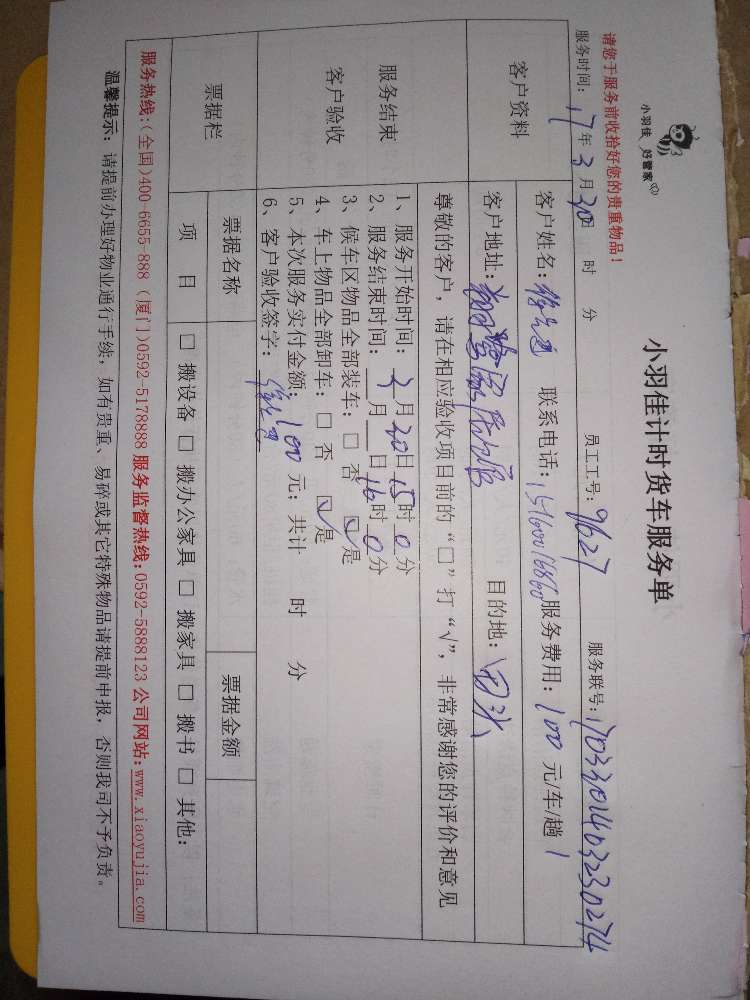 小羽佳 好管家
小羽佳计时货车服务单
请您于服务前收拾好您的贵重物品！
服务时间：17年3月30日 时 分 员工工号：9627 服务联号：1703301403230274
客户资料
客户姓名： 联系电话：15160016860 服务费用：100元/车/趟
客户地址： 目的地：
尊敬的客户，请在相应验收项目前的“□”打“√”，非常感谢您的评价和意见
服务结束
客户验收
1、服务开始时间：3月30日15时0分
2、服务结束时间： 月 日16时0分
3、候车区物品全部装车：□否 ☑是
4、车上物品全部卸车：□否 ☑是
5、本次服务实付金额：100元；共计 时 分
6、客户验收签字：
票据栏
票据名称 票据金额
项 目 □搬设备 □搬办公家具 □搬家具 □搬书 □其他：
服务热线：(全国)400-6655-888（厦门)0592-5178888 服务监督热线：0592-5888123 公司网站：www.xiaoyujia.com
温馨提示：请提前办理好物业通行手续，如有贵重、易碎或其它特殊物品请提前申报，否则我司不予负责。